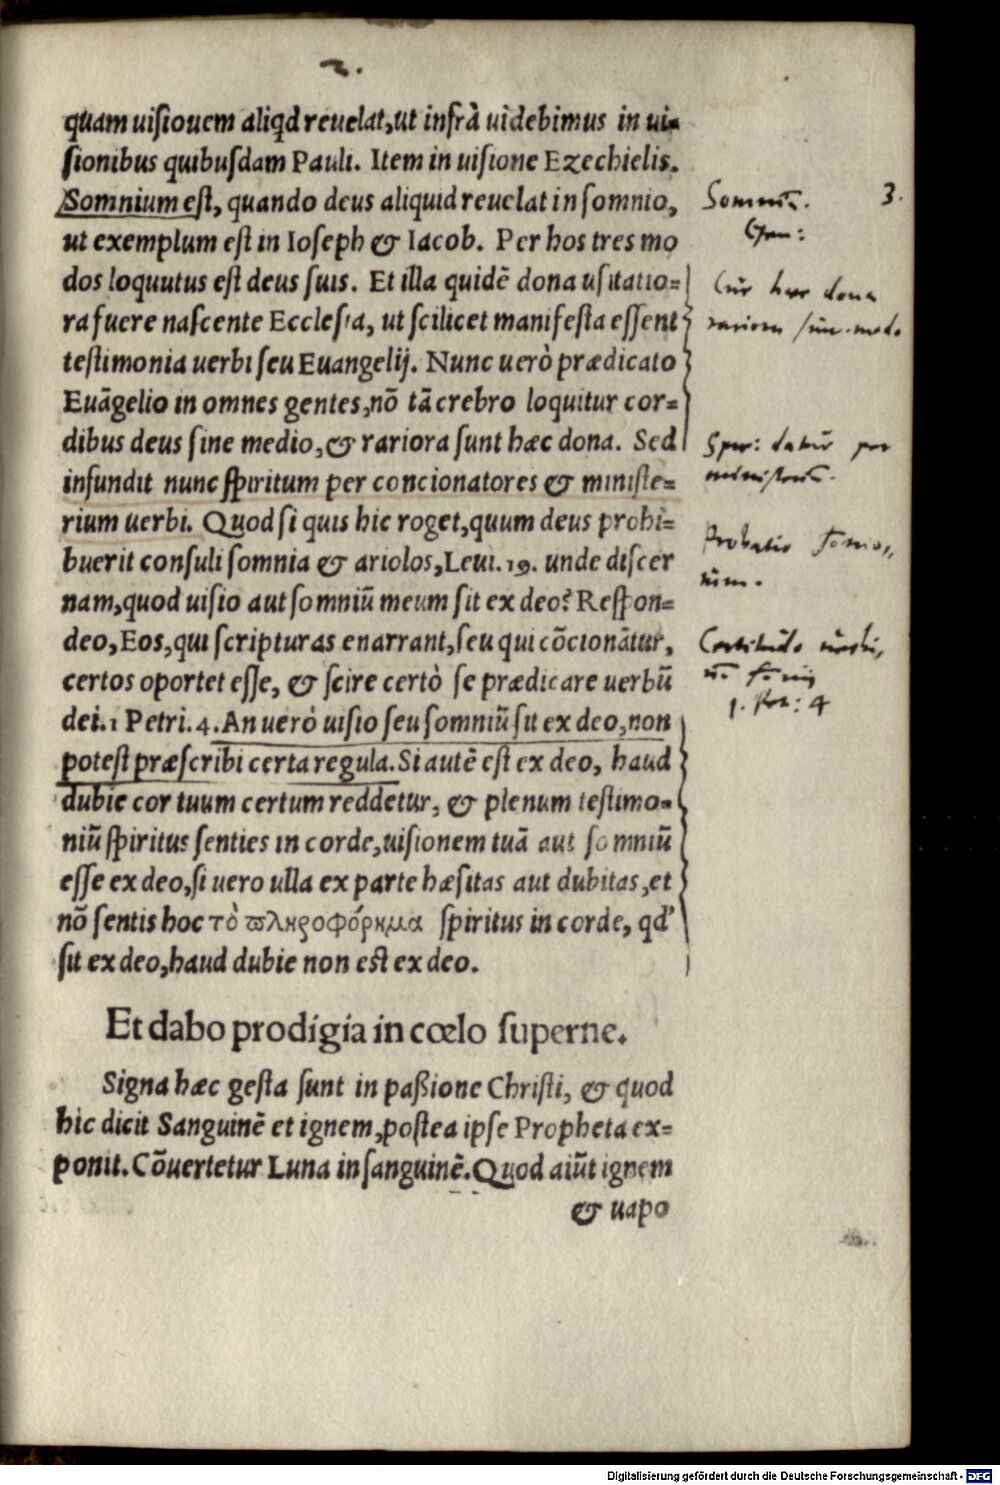 2.
quam uisiouem aliqd reuelat,ut infrà uidebimus in ui-
sionibus quibusdam Pauli. Item in uisione Ezechielis.
Somnium est, quando deus aliquid reuelat in somnio,
ut exemplum est in Ioseph & Iacob. Per hos tres mo
dos loquutus est deus suis. Et illa quidē dona usitatio=
ra fuere nascente Ecclesia, ut scilicet manifesta essent
testimonia uerbi seu Euangelij. Nunc uerò prædicato
Euāgelio in omnes gentes,nō tā crebro loquitur cor=
dibus deus sine medio,& rariora sunt hæc dona. Sed
infundit nunc spiritum per concionatores & ministe=
rium uerbi. Quod si quis hic roget,quum deus prohi=
buerit consuli somnia & ariolos,Leui.19. unde discer
nam,quod uisio aut somniū meum sit ex deo? Respon=
deo,Eos,qui scripturas enarrant,seu qui cōcionātur,
certos oportet esse, & scire certò se prædicare uerbū
dei.1 Petri.4.An uerò uisio seu somniū sit ex deo,non
potest præscribi certa regula.Si autē est ex deo, haud
dubie cor tuum certum reddetur, & plenum testimo=
niū spiritus senties in corde,uisionem tuā aut somniū
esse ex deo,si uero ulla ex parte hæsitas aut dubitas,et
nō sentis hoc τὸ ϖληροφόρημα spiritus in corde, qd'
sit ex deo,haud dubie non est ex deo.
Et dabo prodigia in cœlo superne.
Signa hæc gesta sunt in paßione Christi, & quod
hic dicit Sanguinē et ignem,postea ipse Propheta ex=
ponit. Cōuertetur Luna in sanguinē. Quod aiūt ignem
& uapo
3.
Cur haec dona
rariora
Sper: datur per
ministerium.
Probatio
Certitudo uerbi,
1. Pet: 4
Digitalisierung gefördert durch die Deutsche Forschungsgemeinschaft - DFG